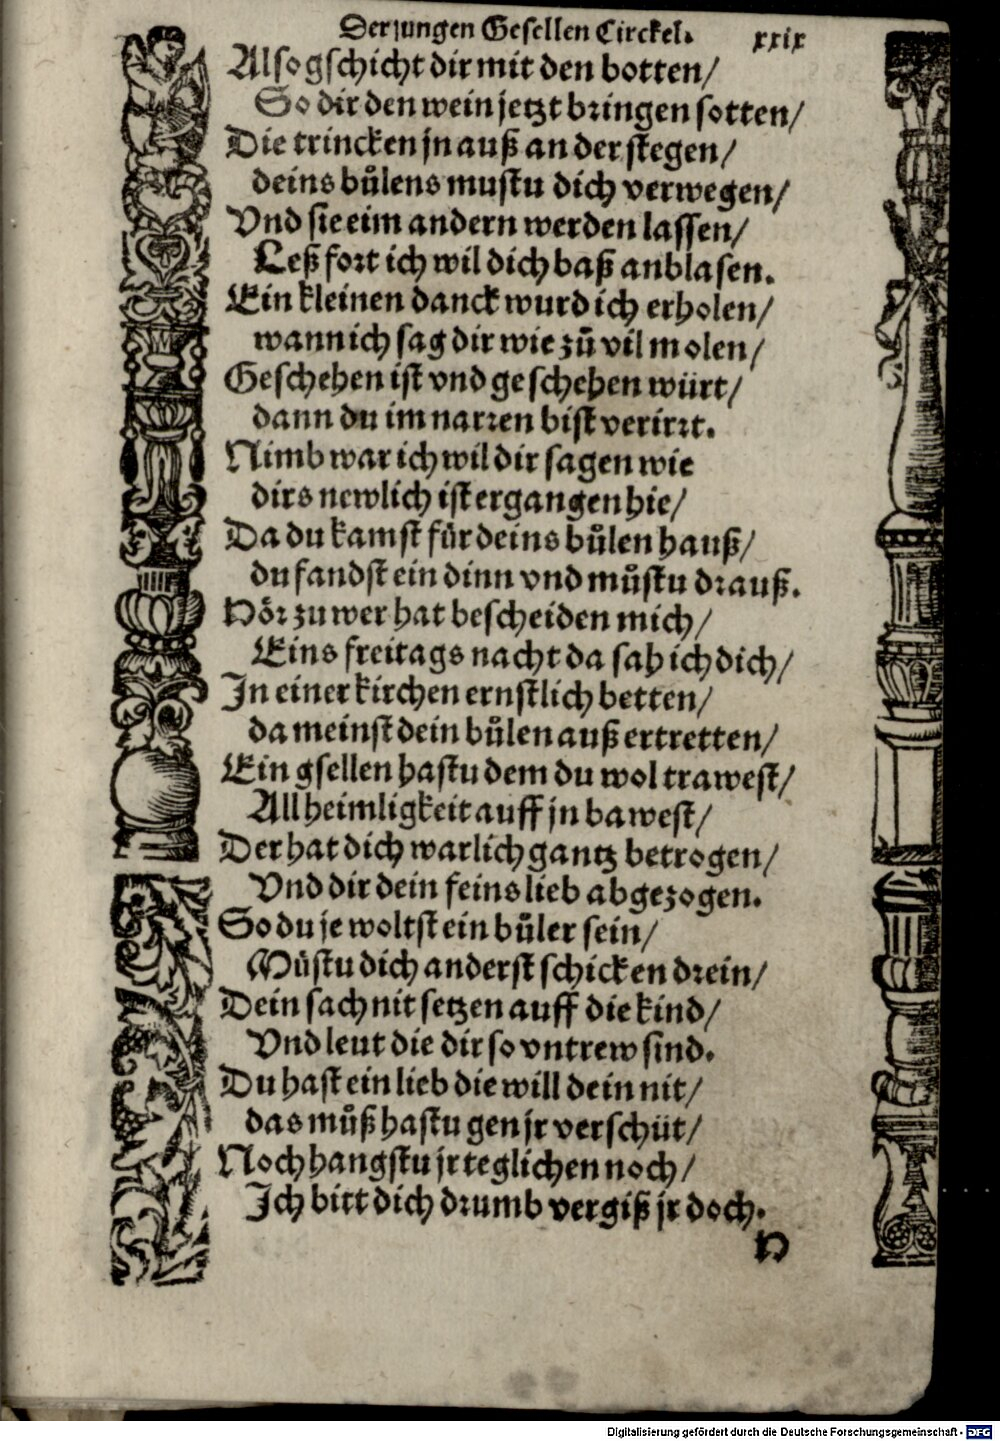 Der jungen Gesellen Circkel. xxix
Also gschicht dir mit den botten/
So dir den wein jetzt bringen sotten/
Die trincken jn auß an der stegen/
deins bůlens mustu dich verwegen/
Vnd sie eim andern werden lassen/
Leß fort ich wil dich baß anblasen.
Ein kleinen danck wurd ich erholen/
wann ich sag dir wie zů vil molen/
Geschehen ist vnd geschehen würt/
dann du im narren bist verirrt.
Nimb war ich wil dir sagen wie
dirs newlich ist ergangen hie/
Da du kamst für deins bůlen hauß/
du fandst ein dinn vnd můstu drauß.
Hör zu wer hat bescheiden mich/
Eins freitags nacht da sah ich dich/
In einer kirchen ernstlich betten/
da meinst dein bůlen auß ertretten/
Ein gsellen hastu dem du wol trawest/
All heimligkeit auff jn bawest/
Der hat dich warlich gantz betrogen/
Vnd dir dein feins lieb abgezogen.
So du je woltst ein bůler sein/
Müstu dich anderst schicken drein/
Dein sach nit setzen auff die kind/
Vnd leut die dir so vntrew sind.
Du hast ein lieb die will dein nit/
das můß hastu gen jr verschüt/
Noch hangstu jr teglichen noch/
Ich bitt dich drumb vergiß jr doch.
Digitalisierung gefördert durch die Deutsche Forschungsgemeinschaft - DFG